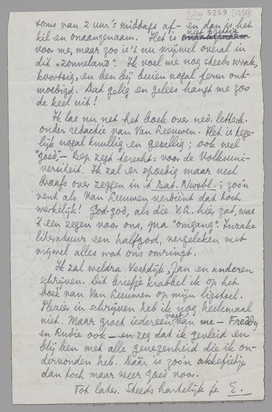 soms van 2 uur 's middags af - en dan is het
kil en onaangenaam. Het is
voor me, maar zoo is 't nu vrijwel overal in
dit "zonneland". Ik voel me nog steeds wrak,
koortsig, en ben bij buien nogal ferm ont-
moedigd. Dat gelig en gelees hangt me zoo
de keel uit!
Ik las nu net het boek over ned. letterk.
onder redactie van Van Leeuwen. Het is hope-
lijk nogal knullig en gezellig; ook wel
"goed," - zeg zegt terecht: voor de Volksuni-
versiteit. Ik zal er spoedig maar veel
kwaads over zeggen in 't Bat. Nwsbl.; zoo'n
vent als Van Leeuwen verdient dat toch
werkelijk! God-god, als die V.L. hier zat, was
't een zegen voor ons, qua "omgang". Inzake
literatuur een halfgod, vergeleken met
vrijwel alles wat ons omringt.
Ik zal weldra Vestdijk, Jan en anderen
schrijven. Dit briefje krabbel ik op het
boek van Van Leeuwen op mijn ligstoel.
Plezier in schrijven heb ik nog heelemaal
niet. Maar groet iedereen van me - Freddy
en Rudie ook - en zeg dat ik geroerd en
blij ben met alle genegenheid die ik on-
dervonden heb. Daar is zoo'n
dan toch maar weer goed voor.
Tot later. Steeds hartelijk je E.